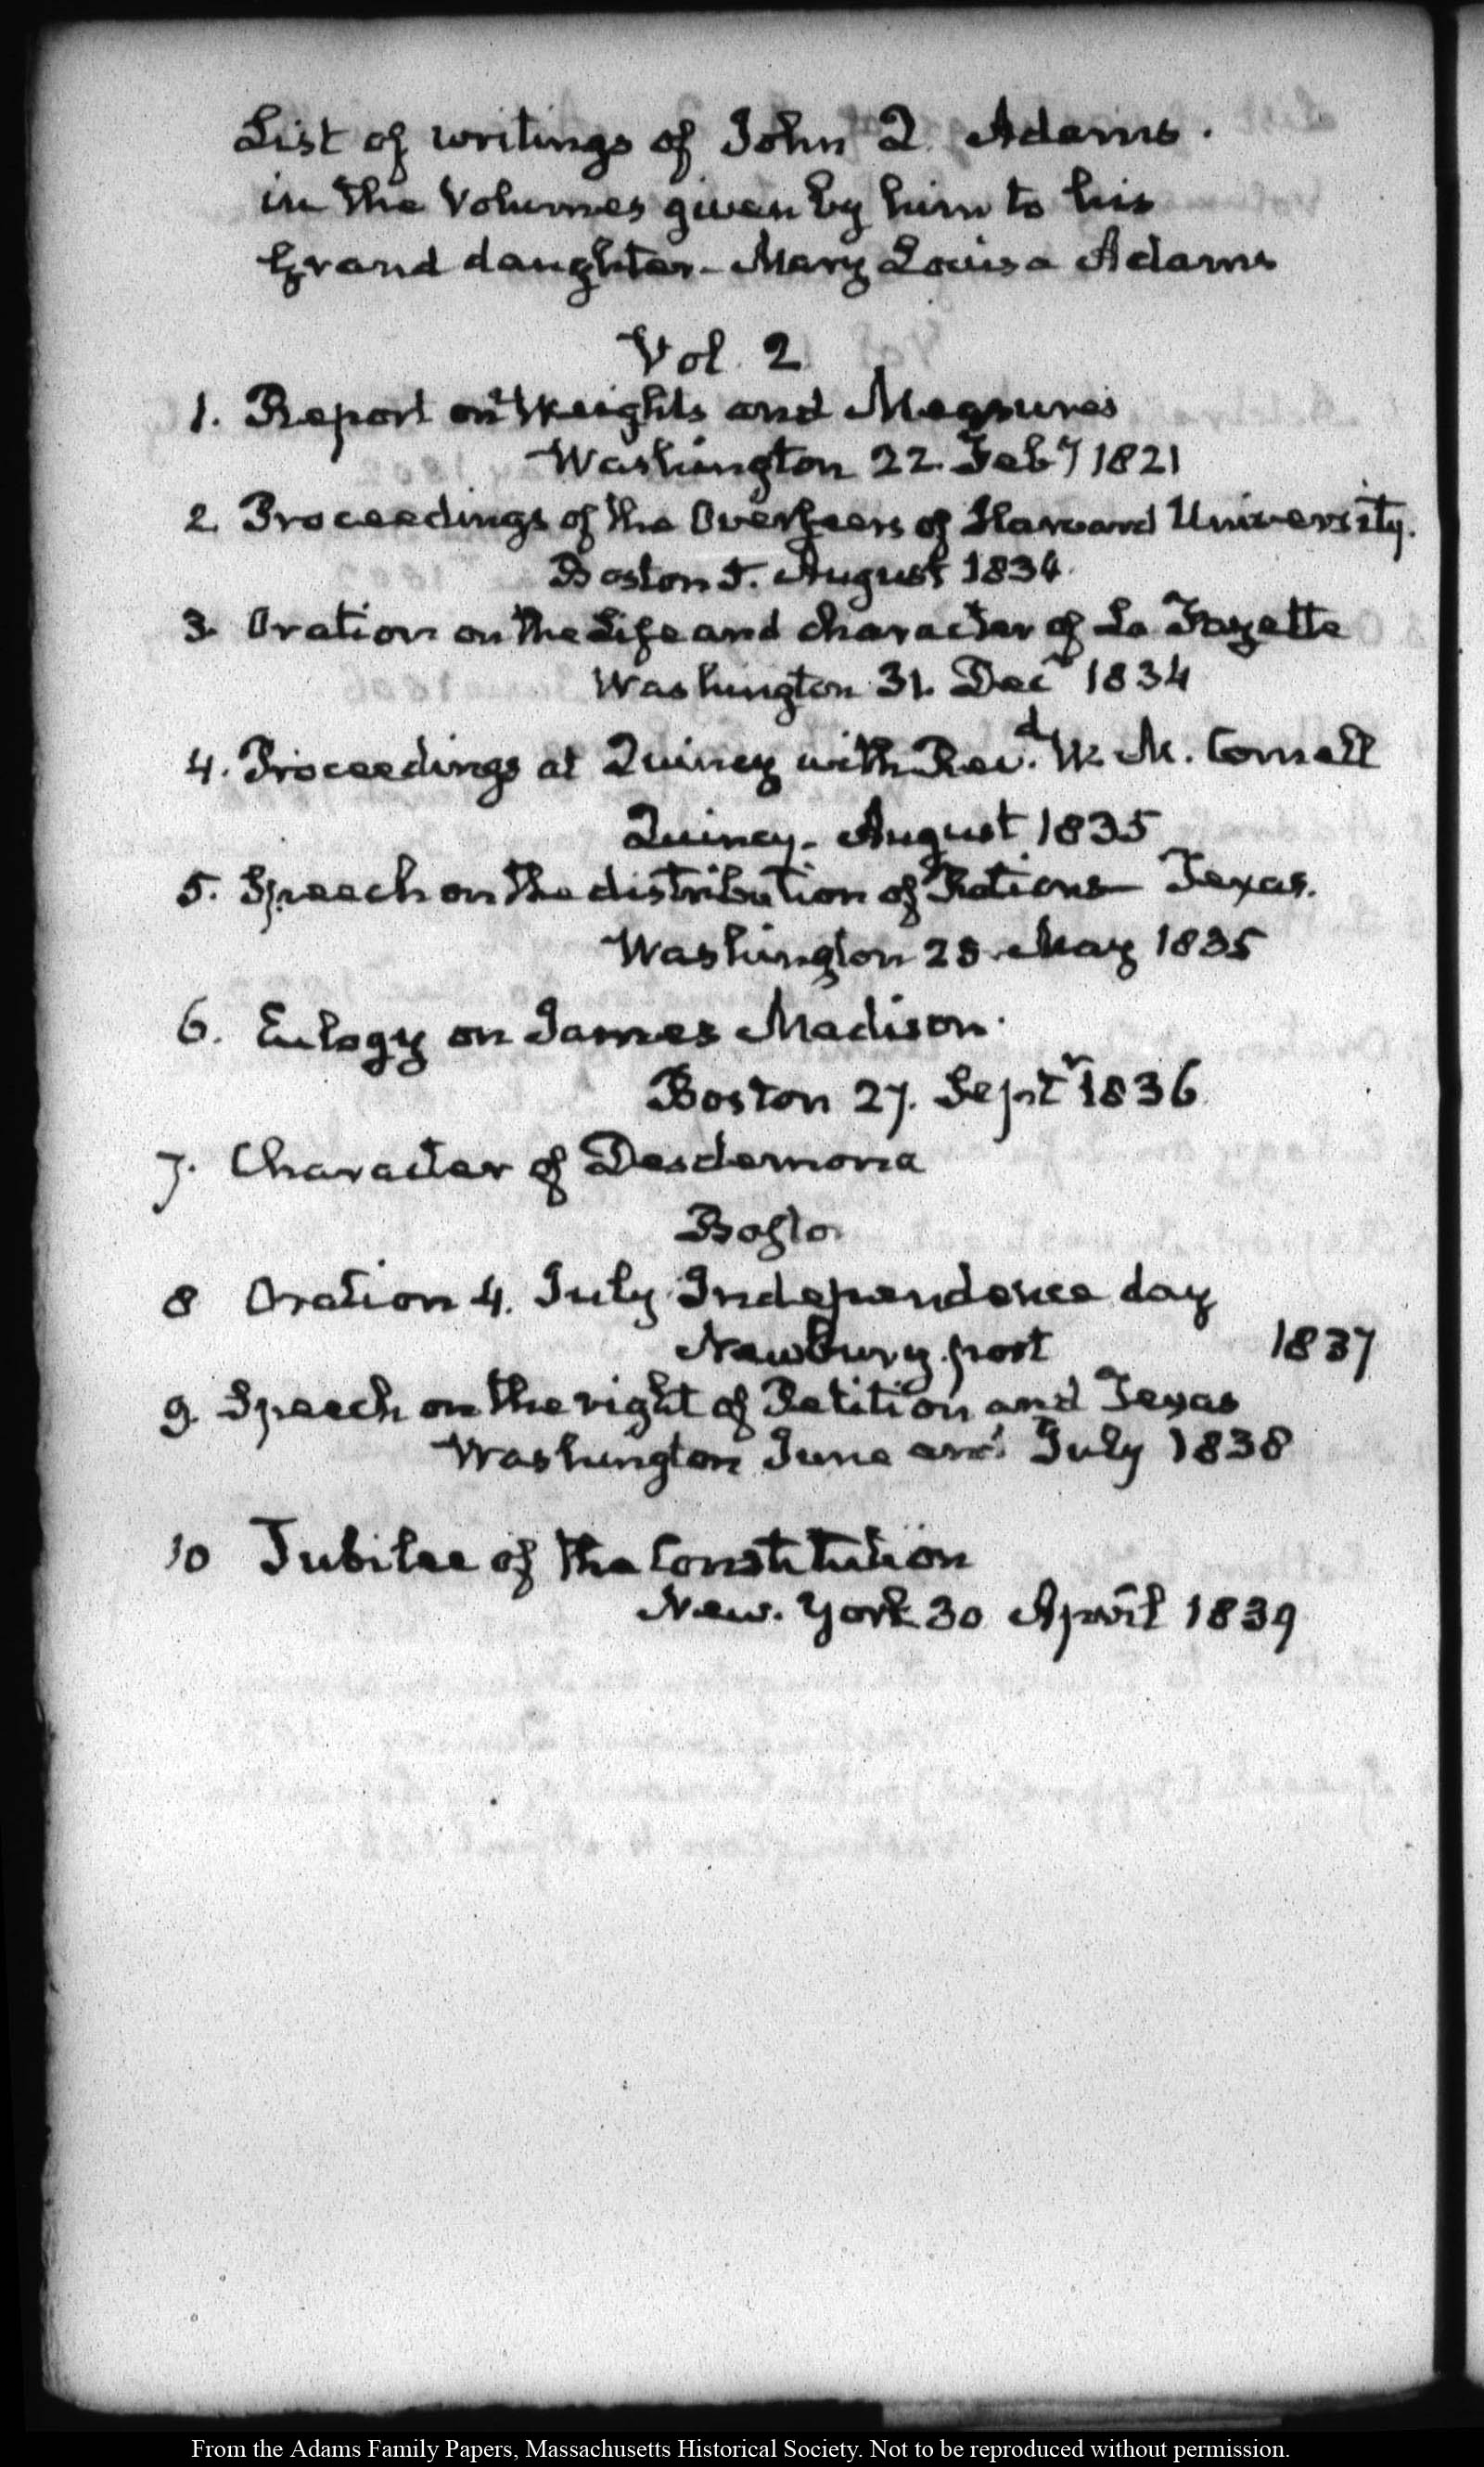 List of writings of John Q. Adams.
in the Volumes given by him to his
Grand daughter - Mary Louisa Adams
Vol. 2
1. Report on Weights and Measures
Washington 22. Feby 1821
2 Proceedings of the Overseers of Harvard University.
Boston 5. August 1834
3. Oration on the Life and character of La Fayette
Washington 31. Decr 1834
4. Proceedings at Quincy with Revd. W. M. Cornell
Quincy - August 1835
5. Speech on the distribution of Rations - Texas.
Washington 25 May 1835
6. Eulogy on James Madison.
Boston 27. Septr 1836
7. Character of Desdemona
Bosto
8 Oration 4. July Independence day
Newbury port 1837
9. Speech on the right of Petition and Texas
Washington June and July 1838
10 Jubilee of the Constitution
New-York 30 April 1839
From the Adams Family Papers, Massachusetts Historical Society. Not to be reproduced without permission.